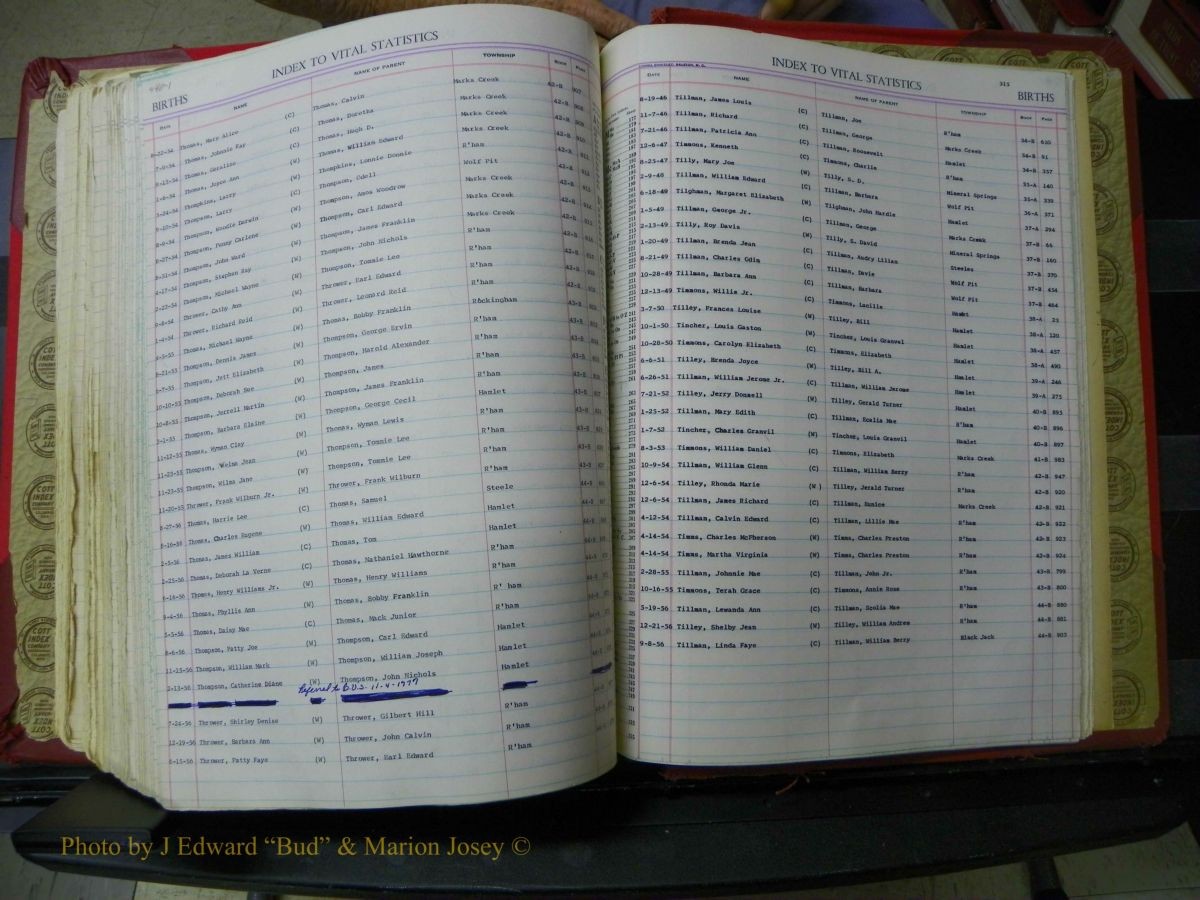 INDEX TO VITAL STATISTICS
BIRTHS
DATE NAME NAME OF PARENT TOWNSHIP BOOK PAGE
Thomas, Mary Alice (C) Thomas, Calvin Marks Creek 42-B 907
Thomas, Johnnie Fay (C) Thomas, Doretha Marks Creek 42-B 908
Thomas, Geraline (C) Thomas, Hugh D. Marks Creek 42-B 909
Thomas, Joyce Ann Thomas, William Edward Marks Creek 42-B 910
Thompkins, Larry Thompkins, Lonnie Donnie R'ham
Thompson, Larry Thompson, Odell Wolf Pit
Thompson, Woodie Darwin (W) Thompson, Amos Woodrow Marks Creek
Thompson, Penny Carlene (W) Thompson, Carl Edward Marks Creek
Thompson, John Ward (W) Thompson, James Franklin Marks Creek
Thompson, Stephen Ray (W) Thompson, John Nichols R'ham
Thompson, Michael Wayne (W) Thompson, Tommie Lee R'ham
Thrower, Cathy Ann (W) Thrower, Earl Edward R'ham
Thrower, Richard Reid (W) Thrower, Leonard Reid R'ham
Thomas, Michael Wayne (W) Thomas, Bobby Franklin Rockingham
Thompson, Dennis James (W) Thompson, George Ervin R'ham
Thompson, Jett Elizabeth (W) Thompson, Harold Alexander R'ham
Thompson, Deborah Dee (W) Thompson, James R'ham
Thompson, Jerrell Martin (W) Thompson, James Franklin R'ham
Thompson, Barbara Elaine (W) Thompson, George Cecil Hamlet
Thomas, Wyman Clay (W) Thomas, Wyman Lewis R'ham
Thompson, Velma Jean (W) Thompson, Tommie Lee R'ham
11-23-55 Thompson, Wilma Jane (W) Thompson, Tommie Lee R'ham
11-20-55 Thrower, Frank Wilburn Jr. (W) Thrower, Frank Wilburn R'ham
8-27-56 Thomas, Harrie Lee (C) Thomas, Samuel Steele
Thomas, Charles Eugene (W) Thomas, William Edward Hamlet
2-5-56 Thomas, James William (C) Thomas, Tom Hamlet
2-25-56 Thomas, Deborah La Verne (C) Thomas, Nathaniel Hawthorne R'ham
Thomas, Henry Williams Jr. (W) Thomas, Henry Williams R'ham
9-4-56 Thomas, Phyllis Ann (W) Thomas, Bobby Franklin R'ham
5-5-56 Thomas, Daisy Mae (C) Thomas, Mack Junior R'ham
8-6-56 Thompson, Patty Joe (W) Thompson, Carl Edward Hamlet
11-15-56 Thompson, William Mark (W) Thompson, William Joseph Hamlet
2-13-56 Thompson, Catherine Diane (W) Thompson, John Nichols Hamlet
Referred to B.V.S. 11-4-1977
7-24-56 Thrower, Shirley Denise (W) Thrower, Gilbert Hill R'ham
12-19-56 Thrower, Barbara Ann (W) Thrower, John Calvin R'ham
6-15-56 Thrower, Patty Faye (W) Thrower, Earl Edward R'ham
INDEX TO VITAL STATISTICS 315
BIRTHS
DATE NAME NAME OF PARENT TOWNSHIP BOOK PAGE
8-19-46 Tillman, James Louis (C) Tillman, Joe R'ham 34-B 610
11-7-46 Tillman, Richard (C) Tillman, George Marks Creek 34-B 91
7-21-46 Tillman, Patricia Ann (C) Tillman, Roosevelt Hamlet 34-B 357
12-6-47 Timmons, Kenneth (C) Timmons, Charlie R'ham 35-A 140
8-25-47 Tilly, Mary Joe (W) Tilly, S. D. Mineral Springs 35-A 339
2-9-48 Tillman, William Edward (C) Tillman, Barbara Wolf Pit 36-A 371
6-18-49 Tilghman, Margaret Elizabeth (W) Tilghman, John Hardie Hamlet 37-A 294
1-5-49 Tillman, George Jr. (C) Tillman, George Marks Creek 37-B 66
2-13-49 Tilly, Roy Davis (W) Tilly, S. David Mineral Springs 37-B 160
1-20-49 Tillman, Brenda Jean (C) Tillman, Audry Lilian Steeles 37-B 370
8-21-49 Tillman, Charles Odim (C) Tillman, Davie Wolf Pit 37-B 454
10-28-49 Tillman, Barbara Ann (C) Tillman, Barbara Wolf Pit 37-B 464
12-13-49 Timmons, Willie Jr. (C) Timmons, Lucille Hamlet 38-A 23
3-7-50 Tilley, Frances Louise (W) Tilley, Bill Hamlet 38-A 120
10-1-50 Tincher, Louis Gaston (W) Tincher, Louis Granvel Hamlet 38-A 457
10-28-50 Timmons, Carolyn Elizabeth (C) Timmons, Elizabeth Hamlet 38-A 490
6-6-51 Tilley, Brenda Joyce (W) Tilley, Bill A. Hamlet 39-A 246
6-26-51 Tillman, William Jerome Jr. (C) Tillman, William Jerome Hamlet 39-A 275
7-21-52 Tilley, Jerry Donnell (W) Tilley, Gerald Turner Hamlet 40-B 895
1-25-52 Tillman, Mary Edith (C) Tillman, Ecelia Mae R'ham 40-B 896
1-7-52 Tincher, Charles Granvil (W) Tincher, Louis Granvil Hamlet 40-B 897
8-3-53 Timmons, William Daniel (C) Timmons, Elizabeth Marks Creek 41-B 983
10-9-54 Tillman, William Glenn (C) Tillman, William Berry R'ham 42-B 947
12-6-54 Tilley, Rhonda Marie (W) Tilley, Jerald Turner R'ham 42-B 920
12-6-54 Tillman, James Richard (C) Tillman, Eunice Marks Creek 42-B 921
4-12-54 Tillman, Calvin Edward (C) Tillman, Lillie Mae R'ham 42-B 922
4-14-54 Timms, Charles McPherson (W) Timms, Charles Preston R'ham 42-B 923
4-14-54 Timms, Martha Virginia (W) Timms, Charles Preston R'ham 42-B 924
2-28-55 Tillman, Johnnie Mae (C) Tillman, John Jr. R'ham 43-B 799
10-16-55 Timmons, Terah Grace (C) Timmons, Annie Rose R'ham 43-B 800
5-19-56 Tillman, Lewanda Ann (C) Tillman, Scolia Mae R'ham 44-B 880
12-21-56 Tilley, Shelby Jean (W) Tilley, William Andrew R'ham 44-B 881
9-8-56 Tillman, Linda Faye (C) Tillman, William Berry Black Jack 44-B 903
COTT INDEX COMPANY
Photo by J Edward “Bud” & Marion Josey ©